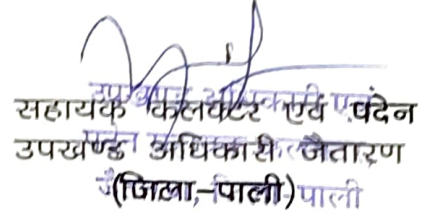 सहायक कलक्टर एवं पदेन
उपखण्ड अधिकारी, जैतारण
(जिला,-पाली) पाली